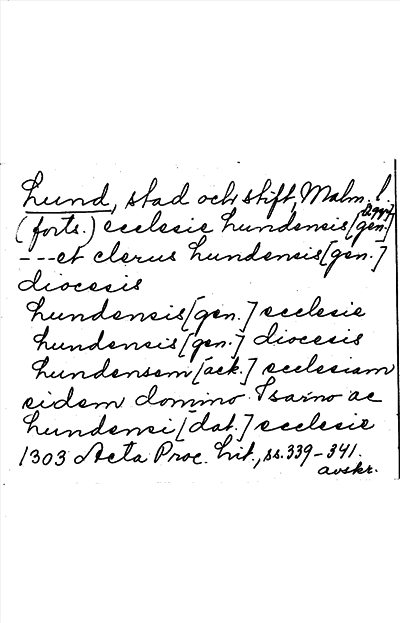 Lund, stad och stift, Malm. l.
(forts.) ecclesie Lundensis [gen.]
---et clerus Lundensis [gen.]
diocesis
Lundensis [gen.] ecclesie
Lundensis [gen.] diocesis
Lundensem [ack.] ecclesiam
eidem domino Isarno ac
Lundensi [dat.] ecclesie
1303 Acta Proc. Lit., ss. 339-341.
avskr.